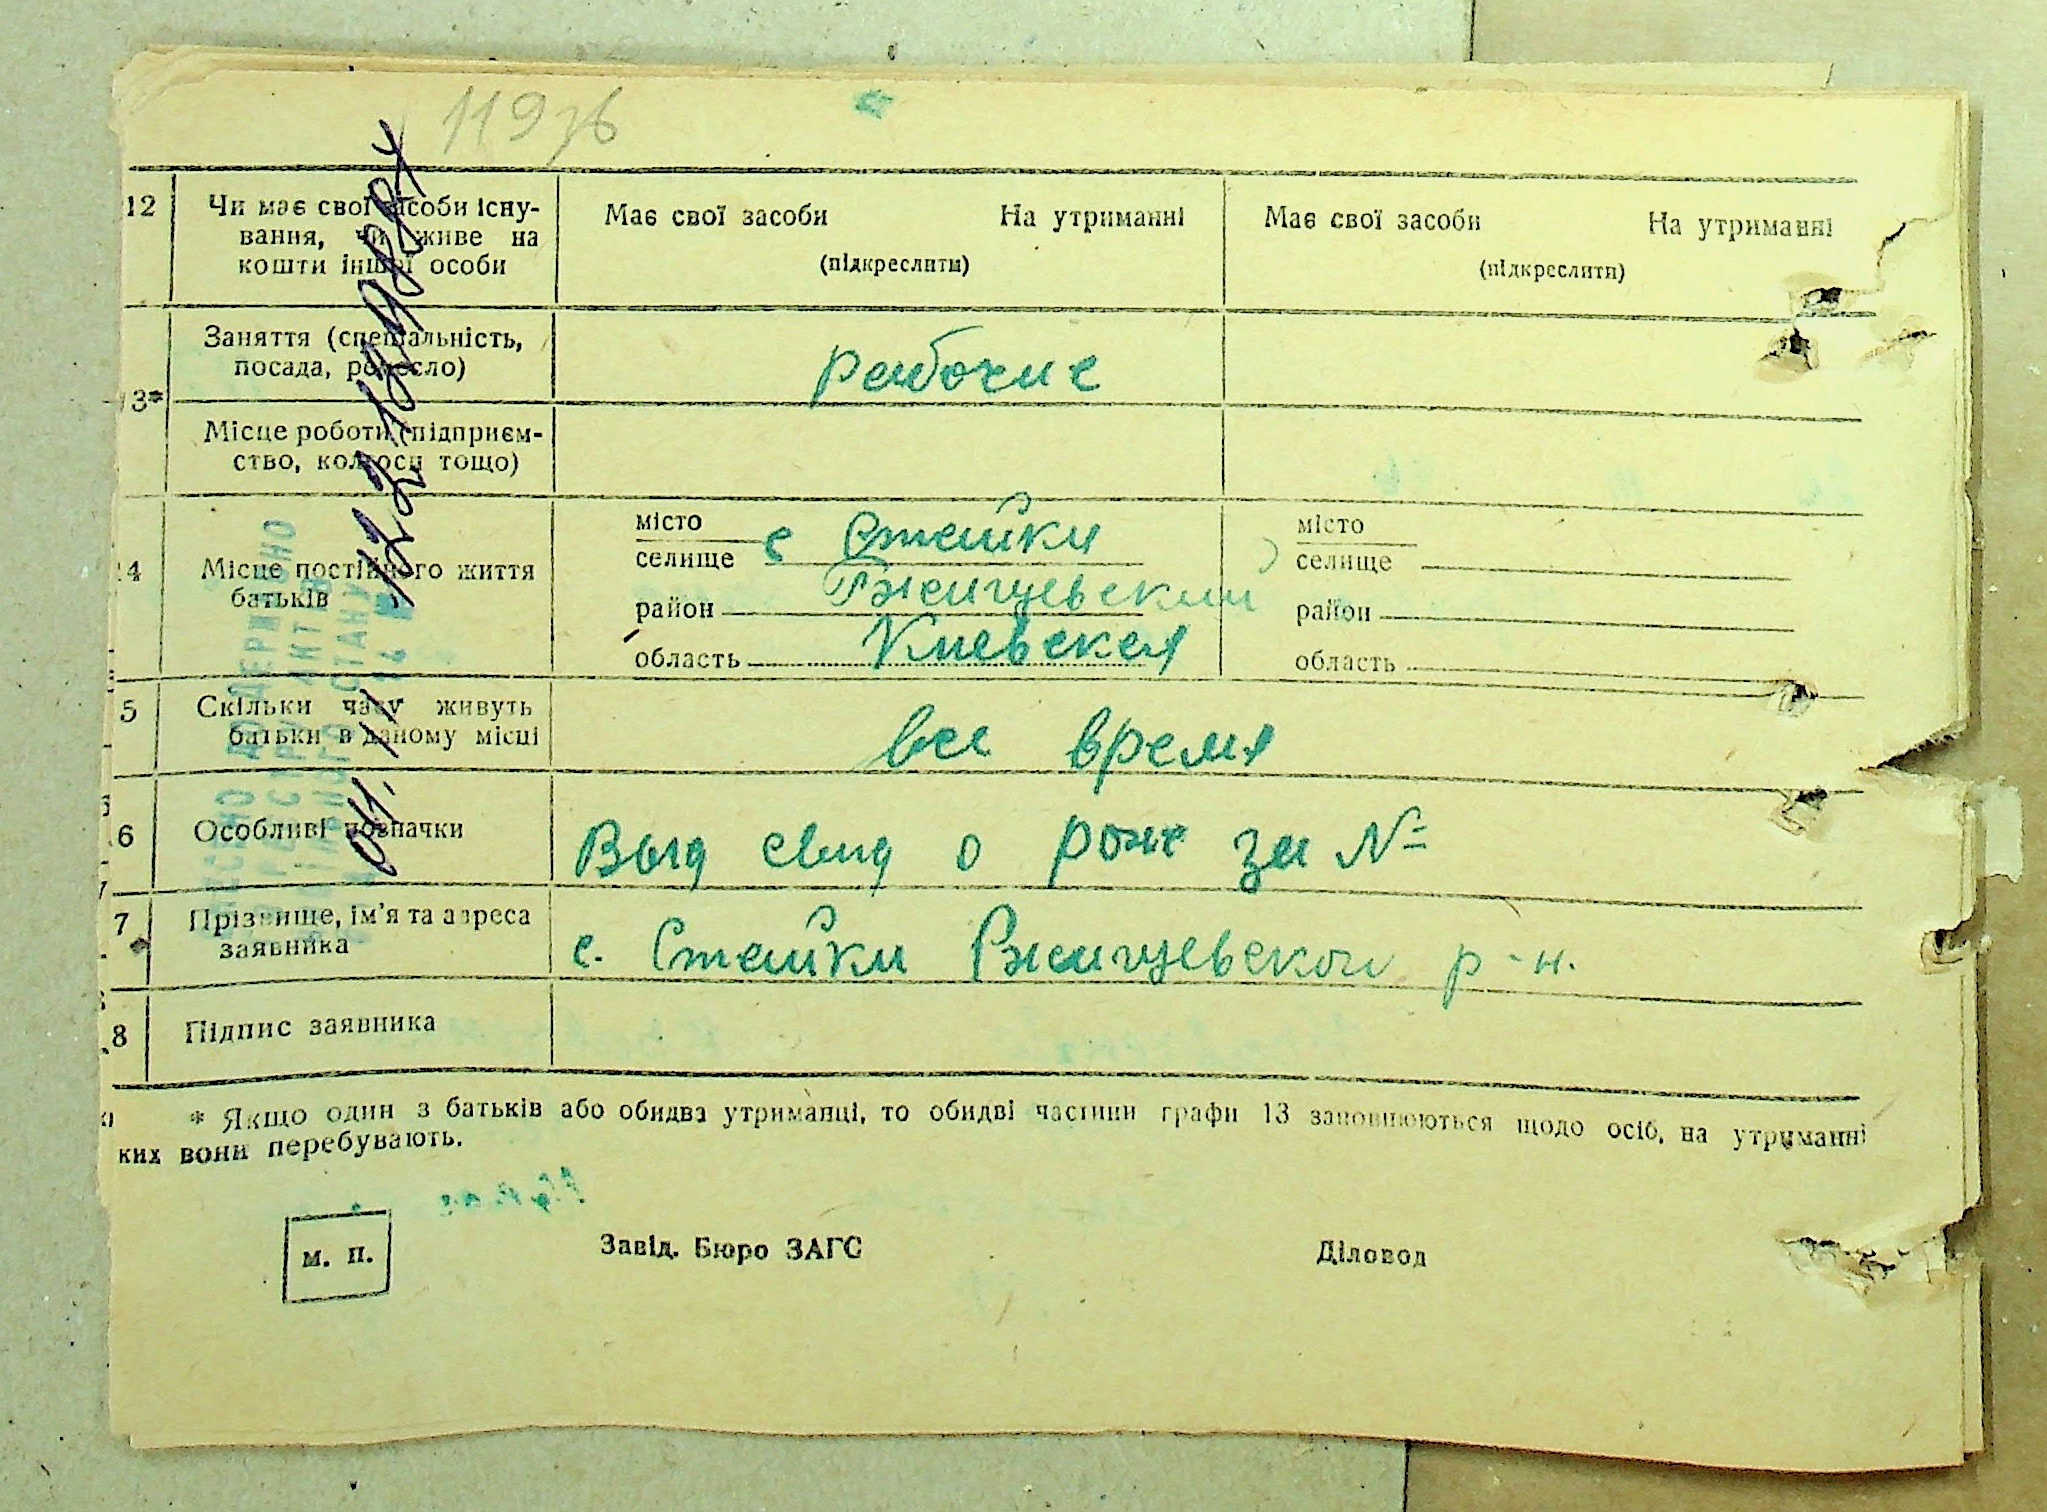 12 Чи має свої засоби існу- Має свої засоби На утриманні Має свої засоби На утриманні
вання, чи живе на
кошти іншої особи (підкреслити) (підкреслити)
Заняття (спеціальність,
посада, ремесло) рабочие
13*
Місце роботи (підприєм-
ство, колгосп тощо)
14 Місце постійного життя
батьків
місто
селище с Стайки
район Ржищевский
область Киевская
місто
селище
район
область
5 Скільки часу живуть
батьки в даному місці все время
6 Особливі позначки Выд свид о рож за №
7 Прізвище, ім'я та адреса
заявника с. Стайки Ржищевской р-н.
8 Підпис заявника
* Якщо один з батьків або обидва утриманці, то обидві частини графи 13 заповнюються щодо осіб, на утриманні
ких вони перебувають.
м. п. Завід. Бюро ЗАГС Діловод